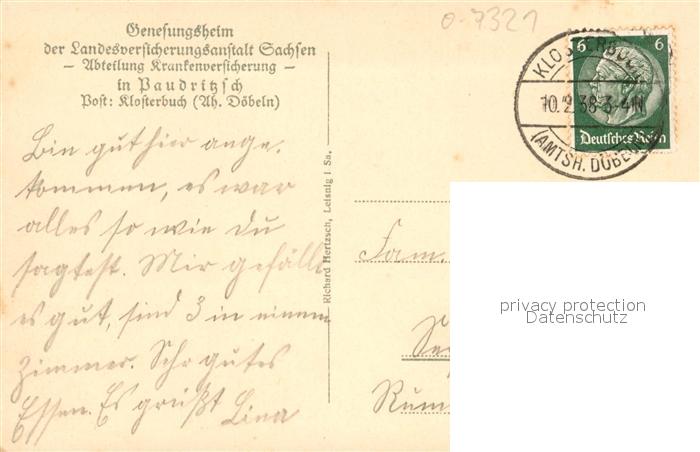 Genesungsheim
der Landesversicherungsanstalt Sachsen
– Abteilung Krankenversicherung –
in Paudritzsch
Post: Klosterbuch (Ah. Döbeln)
0-7321
6 6
Deutsches Reich
KLOSTERBUCH
10.2.38.3-4N
(AMTSH. DÖBELN)
Bin gut hier ange-
kommen, es war
alles so wie du
sagtest. Mir gefällt
es gut, sind 3 in einem
Zimmer. Sehr gutes
Essen. Es grüßt Lina
Richard Hertzsch, Leisnig i Sa.
Fam.
privacy protection
Datenschutz